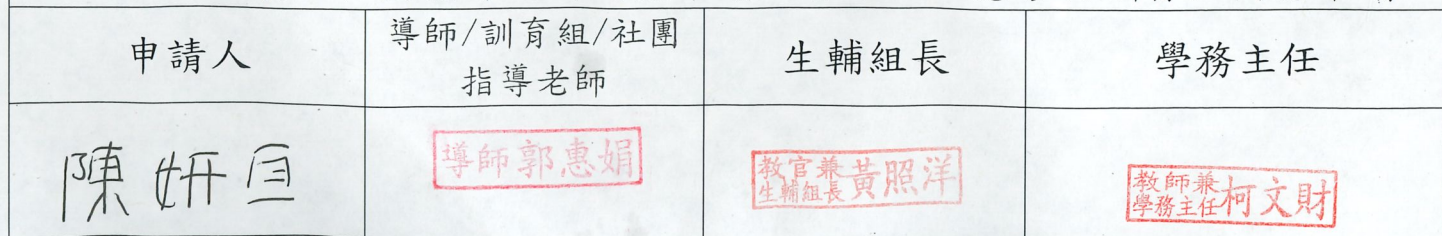 申請人
導師/訓育組/社團
指導老師
生輔組長
學務主任
陳妍亘
導師郭惠娟
教官兼
生輔組長
黃照洋
教師兼
學務主任
柯文財